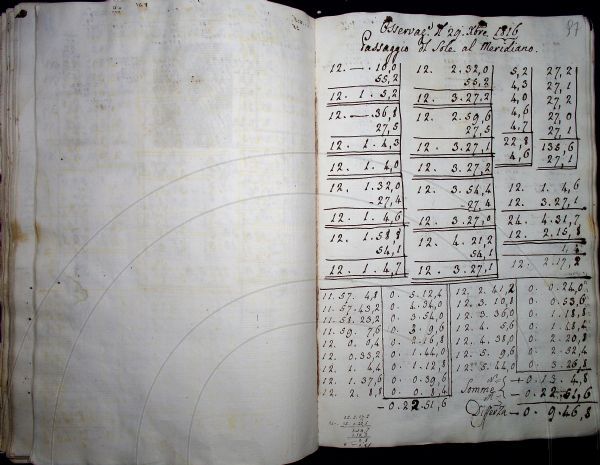 37
Osservaz.e Il 29. Xbre. 1816
Passaggio del Sole al Meridiano.
12. —. 10,0 12. 2. 32,0 5,2 27,2
55,2 55,2 4,3 27,1
12. 1. 5,2 12. 3. 27,2 4,0 27,2
12. —. 36,8 12. 2. 59,6 4,6 27,0
27,5 27,5 4,7 27,1
12. 1. 4,3 12. 3. 27,1 22,8 135,6
12. 1. 4,0 12. 3. 27,2 4,6 27,1
12. 1. 32,0 12. 3. 54,4 12. 1. 4,6
-27,4 -27,4 12. 3. 27,1
12. 1. 4,6 12. 3. 27,0 24. 4. 31,7
12. 1. 58,8 12. 4. 21,2 12. 2. 15,8
54,1 54,1
12. 1. 4,7 12. 3. 27,1 12. 2. 17,2
11. 57. 4,8 0. 5. 12,4 12. 2. 41,2 0. 0. 24,0
11. 57. 43,2 0. 4. 34,0 12. 3. 10,8 0. 0. 53,6
11. 58. 23,2 0. 3. 54,0 12. 3. 36,0 0. 1. 18,8
11. 59. 7,6 0. 3. 9,6 12. 4. 5,6 0. 1. 48,4
12. 0. 0,4 0. 2. 16,8 12. 4. 38,0 0. 2. 20,8
12. 0. 33,2 0. 1. 44,0 12. 5. 9,6 0. 2. 52,4
12. 1. 4,4 0. 1. 12,8 12. 5. 44,0 0. 3. 26,8
12. 1. 37,6 0. 0. 39,6 + 0. 13. 4,8
12. 2. 8,8 0. 0. 8,4 Somme - 0. 22. 51,6
- 0. 22 51,6 Differza - 0. 9. 46,8